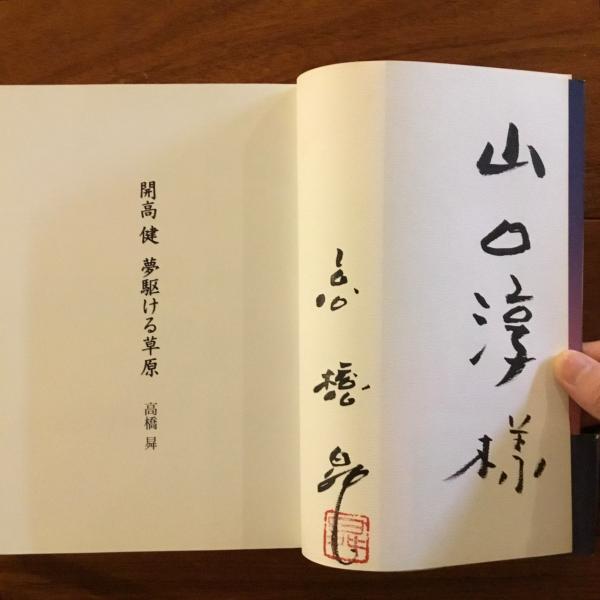 山口淳様
高橋曻
曻
開高 健 夢駆ける草原
高橋 曻